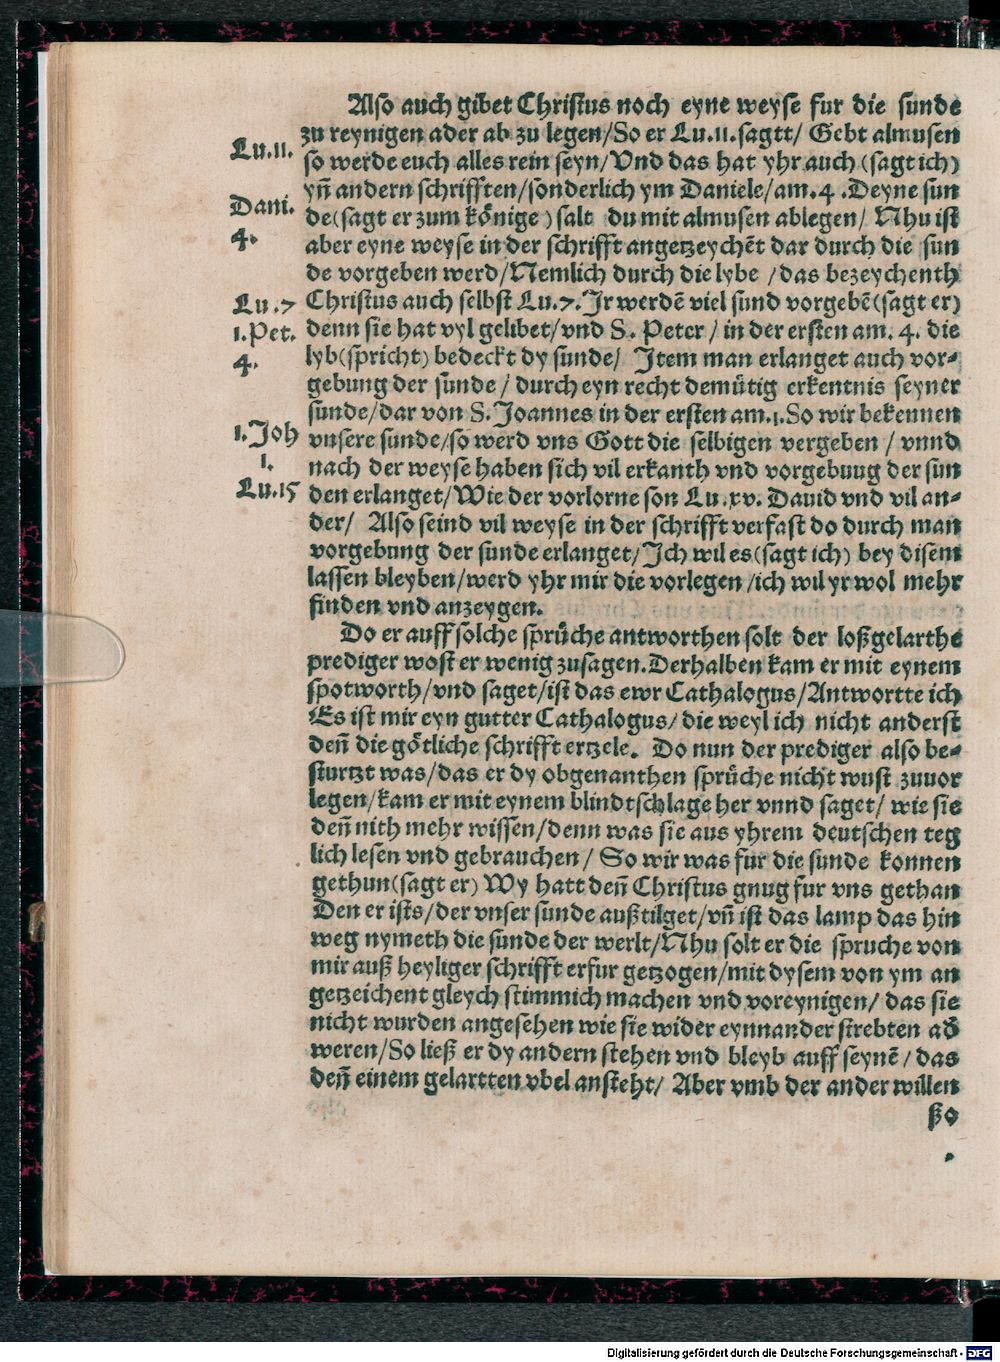 Also auch gibet Christus noch eyne weyse fur die sunde
zu reynigen ader ab zu legen/So er Lu.11.sagtt/ Gebt almusen
Lu.11.
so werde euch alles rein seyn/Vnd das hat yhr auch (sagt ich)
yn̄ andern schrifften/sonderlich ym Daniele/am.4 .Deyne sun
Dani.
de(sagt er zum koͤnige ) salt du mit almusen ablegen/ Nhu ist
4.
aber eyne weyse in der schrifft angetzeychēt dar durch die sun
de vorgeben werd/Nemlich durch die lybe /das bezeychenth
Lu.7
Christus auch selbst Lu.7.Ir werdē viel sund vorgebē(sagt er)
1.Pet.
denn sie hat vyl gelibet/vnd S. Peter/ in der ersten am. 4. die
4.
lyb(spricht) bedeckt dy sunde/ Item man erlanget auch vor⸗
gebung der sunde / durch eyn recht demuͤtig erkentnis seyner
sunde/dar von S. Joannes in der ersten am.1.So wir bekennen
1.Joh
vnsere sunde/so werd vns Gott die selbigen vergeben / vnnd
1.
nach der weyse haben sich vil erkanth vnd vorgebuug der sun
Lu.15
den erlanget/Wie der vorlorne son Lu.xv. Dauid vnd vil an⸗
der/ Also seind vil weyse in der schrifft verfast do durch man
vorgebung der sunde erlanget/Ich wil es(sagt ich) bey disem
lassen bleyben/werd yhr mir die vorlegen /ich wil yr wol mehr
finden vnd anzeygen.
Do er auff solche spruͤche antworthen solt der loßgelarthe
prediger wost er wenig zusagen.Derhalben kam er mit eynem
spotworth/vnd saget/ist das ewr Cathalogus/Antwortte ich
Es ist mir eyn gutter Cathalogus/die weyl ich nicht anderst
den̄ die goͤtliche schrifft ertzele. Do nun der prediger also be⸗
sturtzt was/das er dy obgenanthen spruͤche nicht wust zuuor
legen/kam er mit eynem blindtschlage her vnnd saget/ wie sie
den̄ nith mehr wissen/denn was sie aus yhrem deutschen teg
lich lesen vnd gebrauchen/ So wir was fur die sunde konnen
gethun(sagt er) Wy hatt den̄ Christus gnug fur vns gethan
Den er ists/der vnser sunde außtilget/vn̄ ist das lamp das hin
weg nymeth die sunde der werlt/Nhu solt er die spruche von
mir auß heyliger schrifft erfur getzogen/mit dysem von ym an
getzeichent gleych stimmich machen vnd voreynigen/ das sie
nicht wurden angesehen wie sie wider eynnander strebten ad̾
weren/So ließ er dy andern stehen vnd bleyb auff seynē/das
den̄ einem gelartten vbel ansteht/ Aber vmb der ander willen
ßo
Digitalisierung gefördert durch die Deutsche Forschungsgemeinschaft - DFG